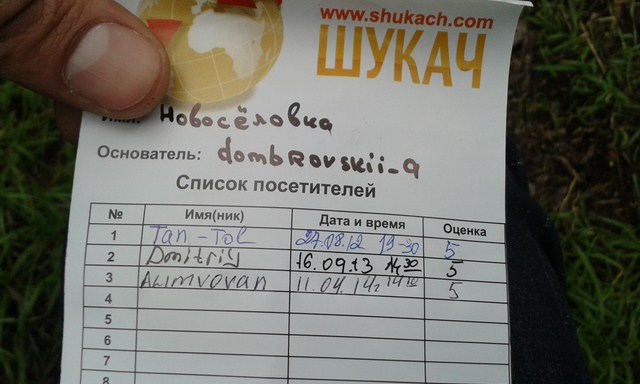 www.shukach.com
ШУКАЧ
Имя: Новосёловка
Основатель: dombrovskii-a
Список посетителей
№ Имя(ник) Дата и время Оценка
1 Tan-Tol 27.08.12 19-30 5
2 Dmitriy 16.09.13 14 30 5
3 ALimvovan 11.04.14г 5
4
5
6
7
8